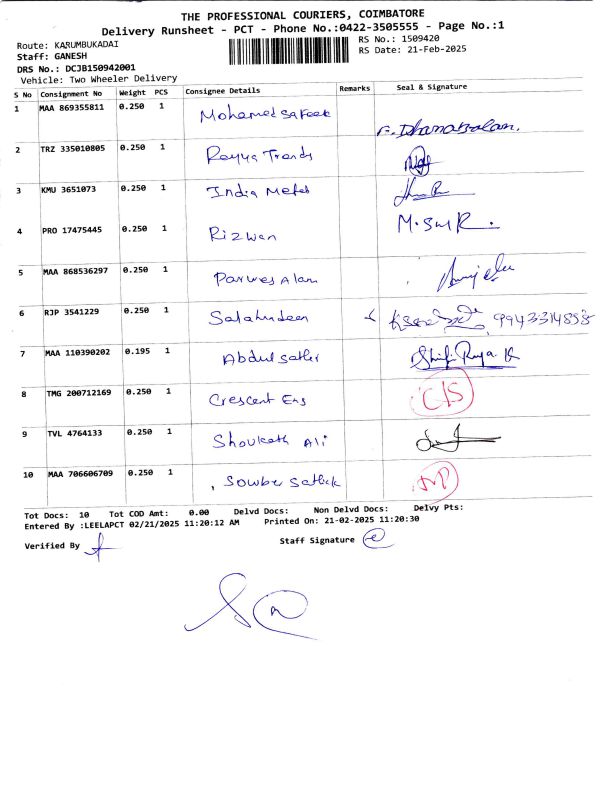 THE PROFESSIONAL COURIERS, COIMBATORE
Delivery Runsheet - PCT - Phone No.:0422-3505555 - Page No.:1
Route: KARUMBUKADAI RS No.: 1509420
Staff: GANESH RS Date: 21-Feb-2025
DRS No.: DCJB150942001
Vehicle: Two Wheeler Delivery
S No Consignment No Weight PCS Consignee Details Remarks Seal & Signature
1 MAA 869355811 0.250 1 Mohamed Safeek
2 TRZ 335010805 0.250 1 Rayya Trends
3 KMU 3651073 0.250 1 India Metel
4 PRO 17475445 0.250 1 Rizwan M. Sul R.
5 MAA 868536297 0.250 1 Parves Alam
6 RJP 3541229 0.250 1 Salahudeen 9943314858
7 MAA 110390202 0.195 1 Abdul Sather
8 TMG 200712169 0.250 1 Crescent Ens C/S
9 TVL 4764133 0.250 1 Shoukath Ali
10 MAA 706606709 0.250 1 Sowber Sathik
Tot Docs: 10 Tot COD Amt: 0.00 Delvd Docs: Non Delvd Docs: Delvy Pts:
Entered By :LEELAPCT 02/21/2025 11:20:12 AM Printed On: 21-02-2025 11:20:30
Verified By Staff Signature